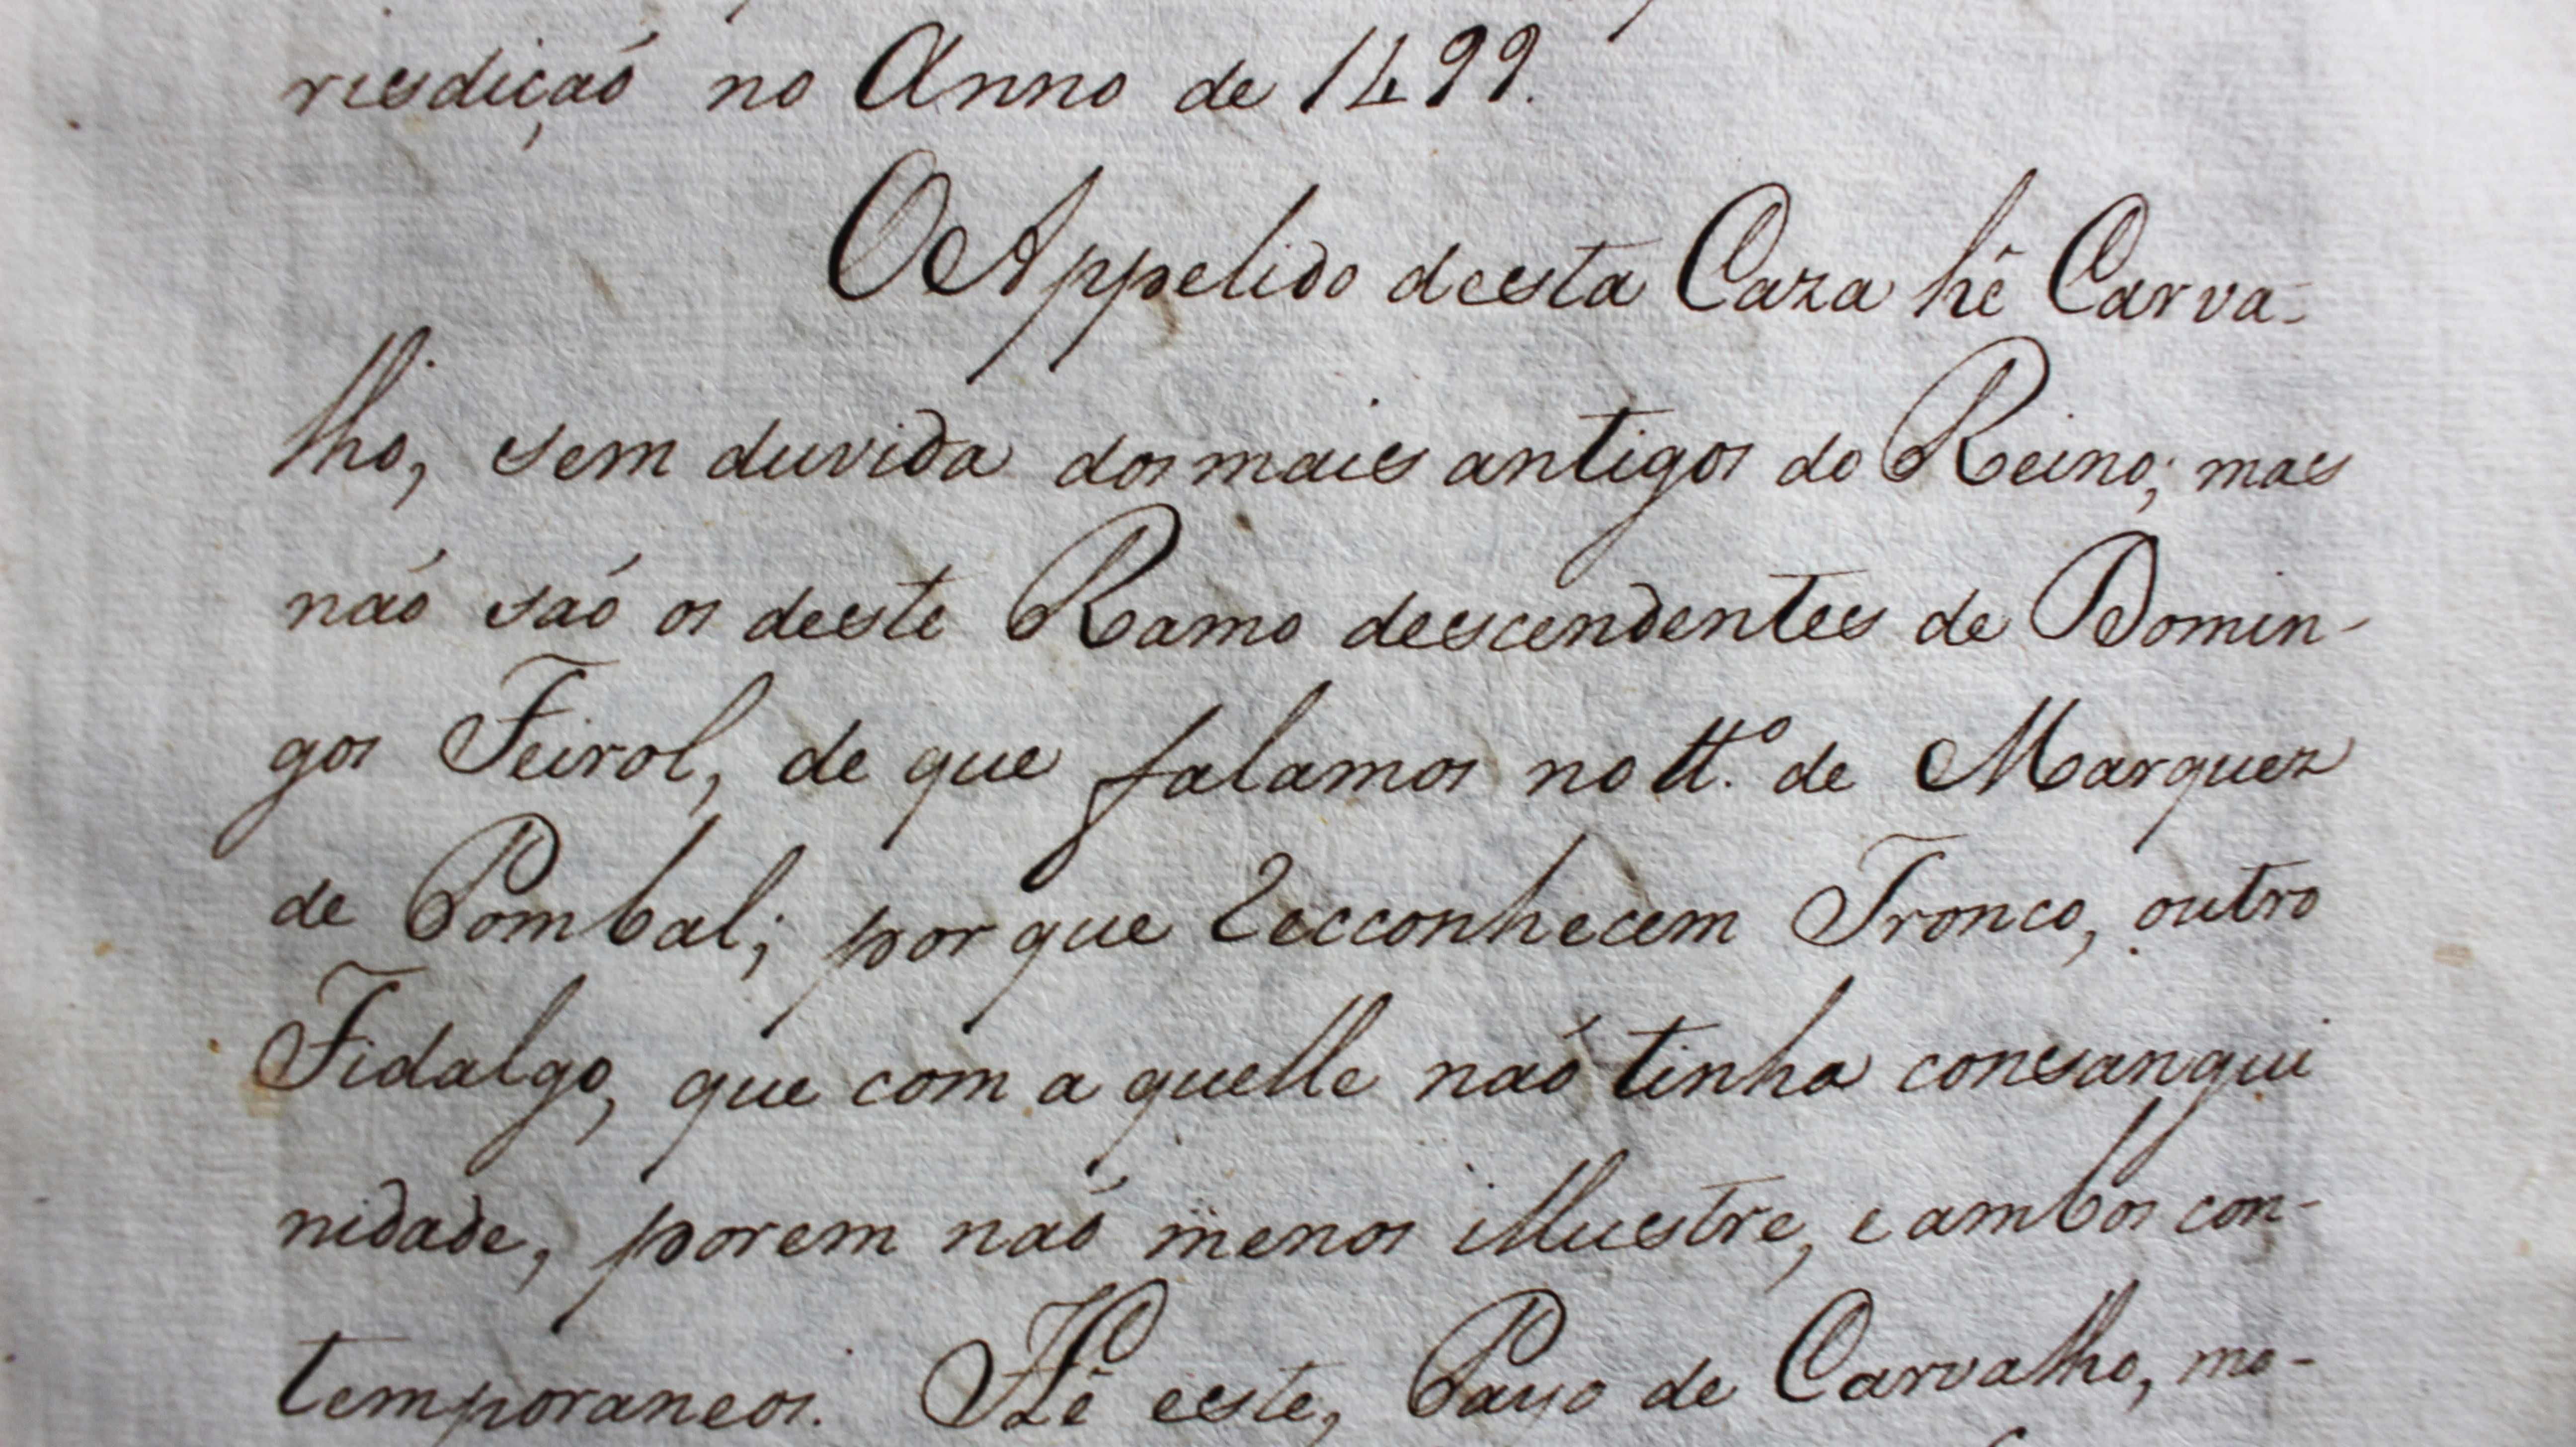 risdiçaó no Anno de 1499.
O Appelido desta Caza hê Carva-
lho, sem duvida dos mais antigos do Reino; mas
naó saó os deste Ramo descendentes de Domin-
gos Feirol, de que falamos no tt.º de Marquez
de Pombal; por que recconhecem Tronco, outro
Fidalgo, que com a quelle naó tinha consangui
nidade, porem naó menos illustre, e ambos con-
temporaneos. Hê este, Payo de Carvalho, mo-